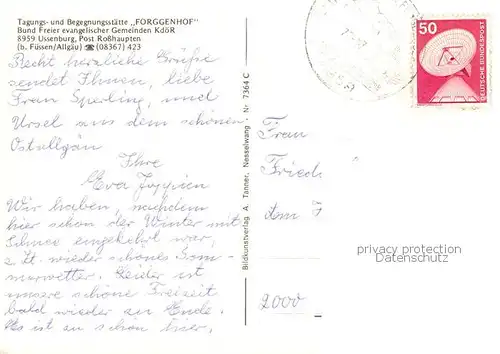 Tagungs- und Begegnungsstätte „FORGGENHOF"
Bund Freier evangelischer Gemeinden KdöR
8959 Ussenburg, Post Roßhaupten
(b. Füssen/Allgäu) ☎ (08367) 423
Recht herzliche Grüße
sendet Ihnen, liebe
Frau Sperling, und
Ursel aus dem schönen
Ostallgäu
Ihre
Eva
Wir haben, nachdem
hier schon der Winter mit
Schnee eingekehrt war,
z.Zt. wieder schönes Som-
merwetter. Leider ist
unsere schöne Freizeit
bald wieder zu Ende.
Es ist so schön hier,
Bildkunstverlag A. Tanner, Nesselwang Nr 7364 C
50
DEUTSCHE BUNDESPOST
Frau
Fried
dem
2000
privacy protection
Datenschutz